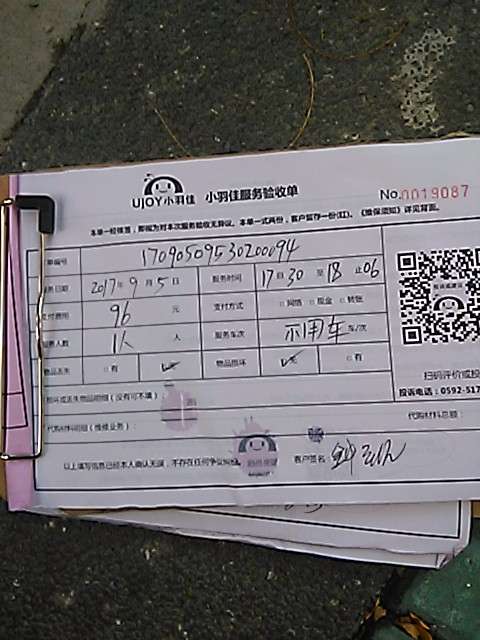 UJOY小羽佳 小羽佳服务验收单 No.0019087
本单一经签签，即视为对本次服务验收无异议。本单一式两份，客户留存一份(红)。《维保须知》详见背面。
单编号 17090509530200094
务日期 2017年9月5日 服务时间 17时30至18止06
支付费用 96 元 支付方式 □网络 □现金 □转账
服务人数 1人 人 服务车次 不用车 车/次
物品丢失 □有 物品损坏 □无 □有
损坏或丢失物品明细（没有可不填）：
代购材料明细（维修业务）： 代购材料总额：
以上填写信息已经本人确认无误，不存在任何争议纠纷。 客户签名：
扫码评价或投
投诉电话：0592-517